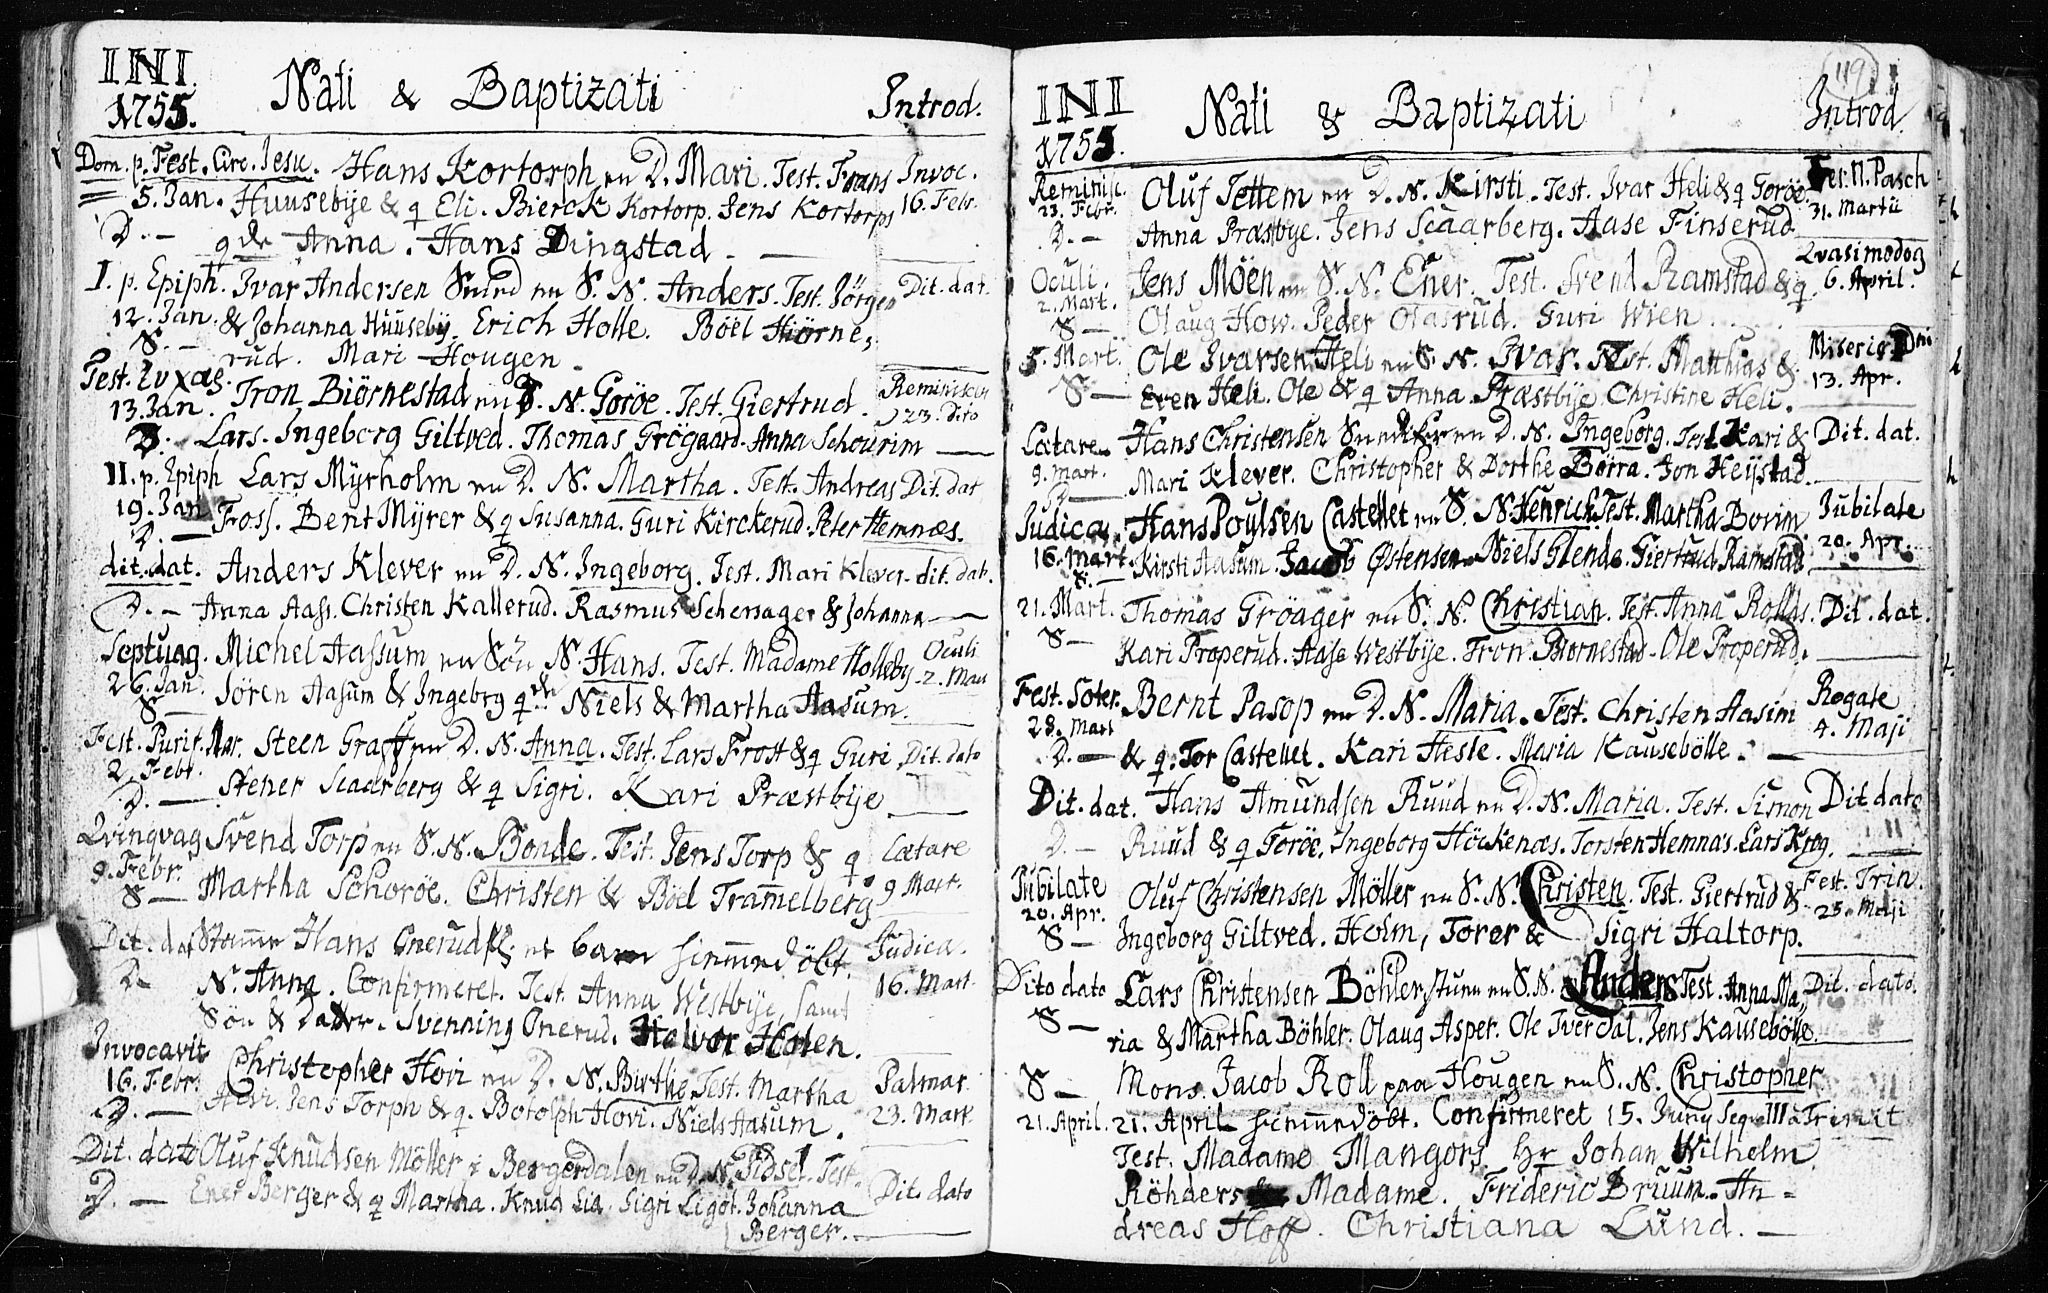 INI
1755. Nati & Baptizati Introd.
Dom. p. Fest. Circ. Jesu. Hans Kortorph en D. Mari. Test. Frans Invoc.
5. Jan. Huusebÿe & q Eli. Bierck Kortorp. Jens Kortorps 16. Febr.
D. — q de Anna. Hans Dingstad —
I. p. Epiph. Ivar Andersen Sund en S. N. Anders. Test. Jörgen Dit. dat.
12. Jan. & Johanna Huusebÿ. Erich Holle. Böel Hiörne,
S. — rud. Mari Hougen
Test. Ivar Tron Biörnestad en D. N. Goröe. Test. Giertrud. Reminiscer
13. Jan. 23. Dito
D. Lars. Ingeborg Giltved. Thomas Grögaard. Anna Schourim —
II. p. Epiph Lars Mÿrholm en D. N. Martha. Test. Andreas Dit. dat
19. Jan Foss. Bent Mÿrer & q Susanna. Guri Kirckerud. Peter Hemnæs.
D. —
dit. dat. Anders Klever en D. N. Ingeborg. Test. Mari Klever. dit. dat.
D. — Anna Aass. Christen Kallerud. Rasmus Schersager & Johanna —
Septuag. Michel Aassum en Sön N. Hans. Test. Madame Holleby Oculi
26. Jan. Jören Aasum & Ingeborg q de Niels & Martha Aasum. 2. Mart
S —
Fest. Purif. Mar. Steen Graff en D. N. Anna. Test. Lars Frost & q Guri Dit. dato
2. Febr.
D. — Stener Scaarberg & q Sigri. Kari Præstbÿe —
Qvinqvag Svend Torp en S. N. Bonde. Test. Jens Torp & q Lætare
9. Febr. Martha Schoröe. Christen & Böel Tramelberg 9 Mart.
S —
Dit. dat Hans Gnerud et barn hiemmedöbt. Judica.
D. N. Anna. Confirmeret. Test. Anna Westbÿe, samt 16. Mart
Sön & Datter. Svenning Onerud. Halvor Holen.
Invocavit Christopher Hovi en D. N. Birthe. Test. Martha Palmar
16. Febr. Hovi. Jens Torph & q. Botolph Hovi. Niels Aasum. 23. Mart
D. —
Dit. dato Oluf Knudsen Möller i Bergerdalen en D. N. Sidsel. Test.
D. — Ener Berger & q Martha. Knud Lia. Sigri Ligot. Johanna Dit. dato
Berger. —
119
INI
1755. Nati & Baptizati Introd.
Reminisc. Oluf Tettem en D. N. Kirsti. Test. Ivar Heli & q Goröe Fer. II. Pasch
23. Febr. 31. Martii
D. — Anna Præstbye. Jens Scaarberg. Aase Finserud
Oculi. Jens Möen en S. N. Ener. Test. Svend Ramstad & q Qvasimodog
2. Mart. 6. April.
S — Olaug How. Peder Olasrud. Guri Wien
5. Mart. Ole Ivarsen Heli en S. N. Ivar. Test. Matthias & Miseric. Dni
S — Even Heli. Ole & q Anna Præstbÿe Christine Heli. 13. Apr.
Lætare Hans Christensen en D. N. Ingeborg. Test. Kari & Dit. dat.
9. Mart.
D — Mari Klever. Christopher & Dorthe Börra. Jon Heÿstad. —
Judica. Hans Poulsen Castellet en S. N. Henrich. Test. Martha Bovim Jubilate
16. Mart. Kirsti Aasum. Jacob Østensen. Niels Glende. Giertrud Ramstad 20. Apr.
S. —
21. Mart. Thomas Gröager en S. N. Christian. Test. Anna Rollds. Dit. dat.
S — Kari Properud. Aase Westbÿe. Tron Biornestad. Ole Properud. —
Fest. Soter. Bernt Pasop en D. N. Maria. Test. Christen Aasim Rogate
28. Mart 4. Maji
D. — & q. Tor Castellet. Kari Hesle. Maria Kausebölle. —
Dit. dat. Hans Amundsen Ruud en D. N. Maria. Test. Simon Dit dato
D. — Ruud & q Goröe. Ingeborg Höckenæs. Torsten Hemnæs. Lars Krog. —
Jubilate Oluf Christensen Möller en S. N. Christen. Test. Giertrud & Fest. Trin.
20. Apr. 25. Maji
S — Ingeborg Giltved. Holm, Torer & Sigri Haltorp.
Dito dato Lars Christensen Böhlerstuen en S. N. Anders Test. Anna Ma, Dit. dato.
S — ria & Martha Böhler. Olaug Asper. Ole Iverdal. Jens Kausebölle. —
S — Mons. Jacob Roll paa Hougen en S. N. Christopher
21. April. 21. April hiemmedöbt. Confirmeret 15. Junij Seqv. III a Trinit
Test. Madame Mangors Hr Johan Wilhelm
Röhders Madame. Frideric Bruun. An=
dreas Hoff. Christiana Lund. —